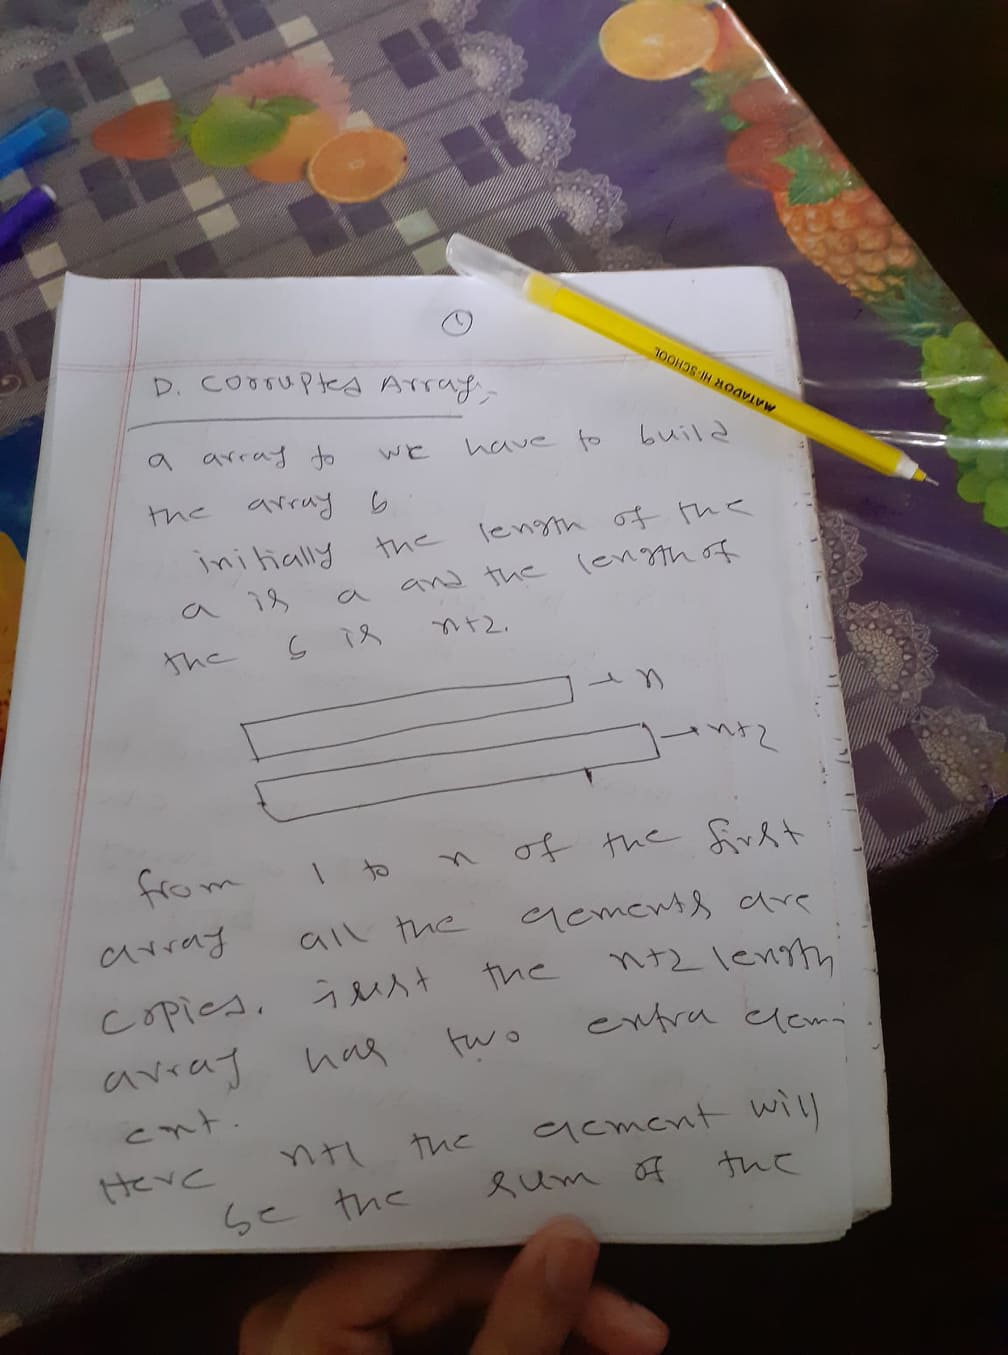 1
D. Corrupted Array,
a array to we have to build
the array b
initially the length of the
a is a and the length of
the b is n+2.
→ n
→ n+2
from 1 to n of the first
array all the elements are
copied. just the n+2 length
array has two extra elem-
ent.
Here n+1 the element will
be the sum of the
MATADOR HI-SCHOOL